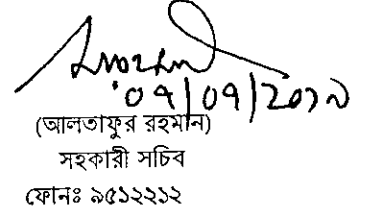 ০৭/০৭/২০১৯
(আলতাফুর রহমান)
সহকারী সচিব
ফোনঃ ৯৫১২২১২